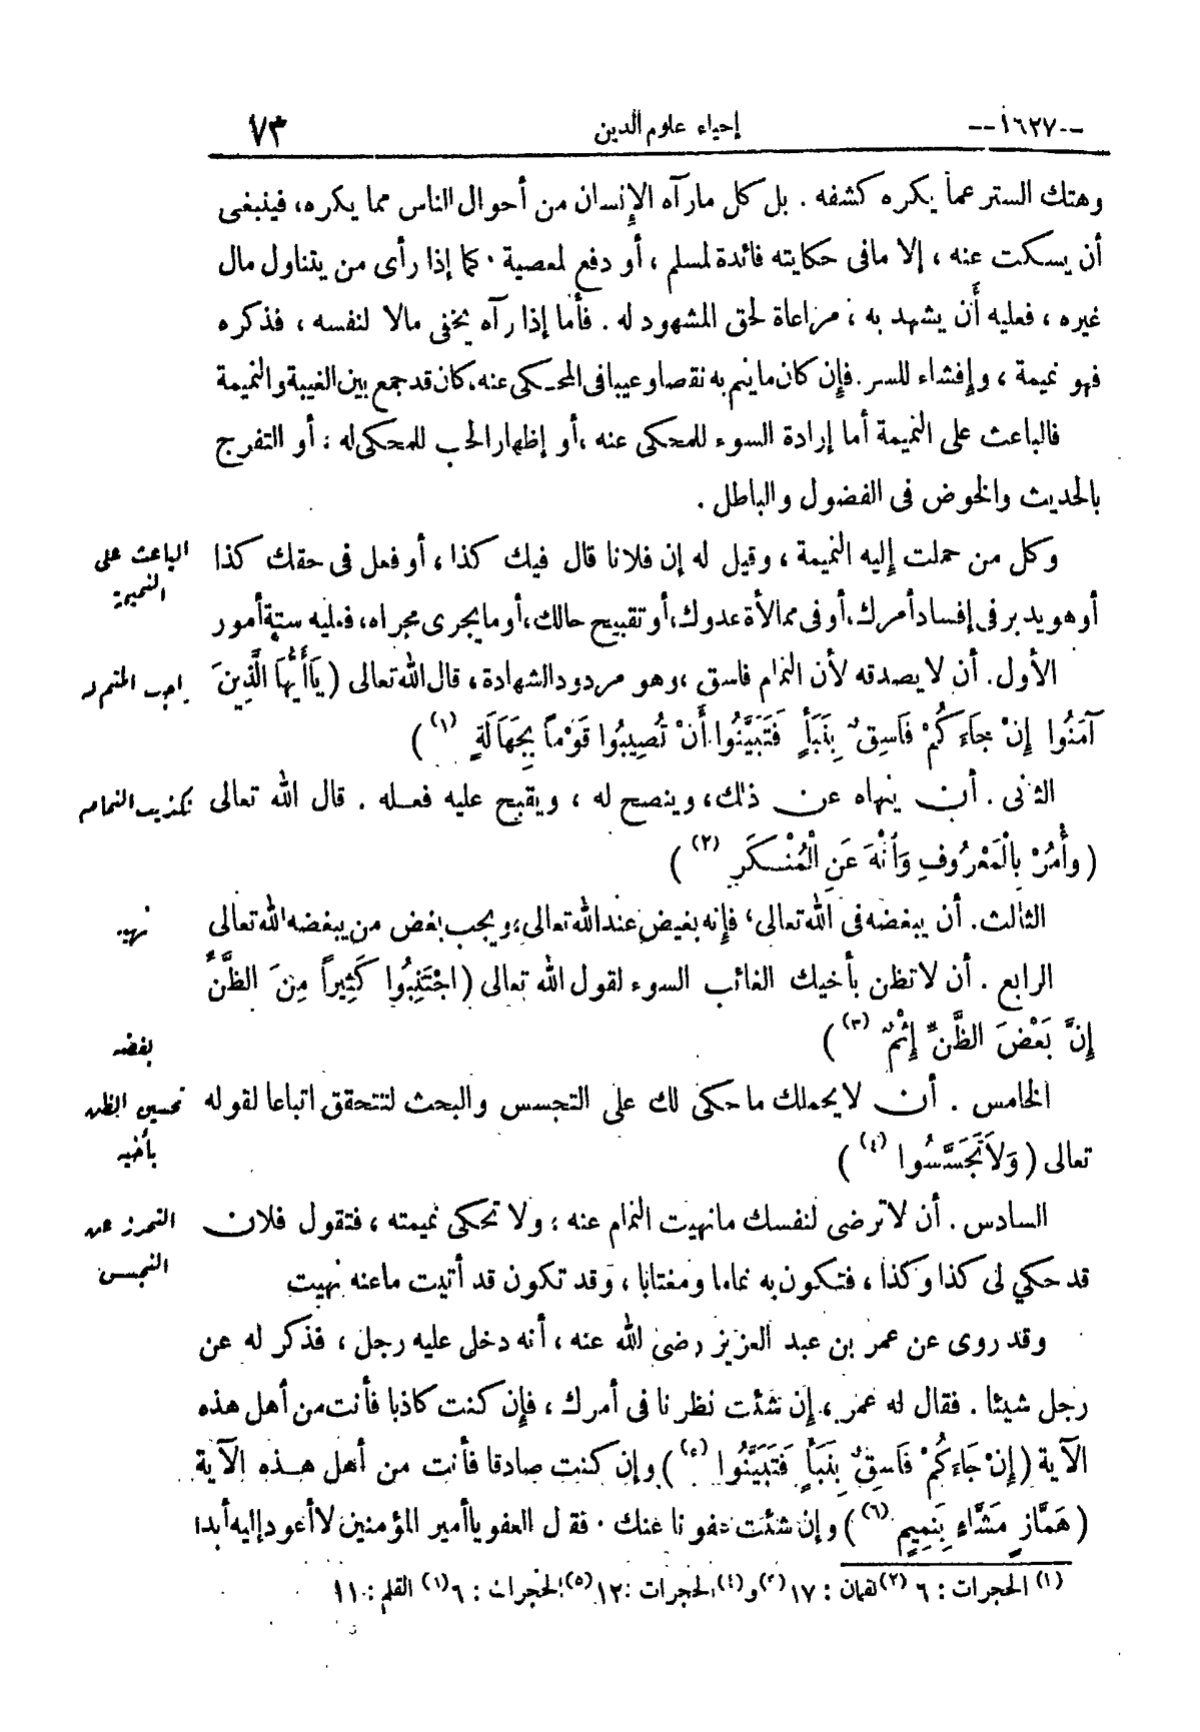 --١٦٢٧-- إحياء علوم الدين ٧٣
وهتك الستر عما يكره كشفه . بل كل مارآه الإنسان من أحوال الناس مما يكره، فينبغى
أن يسكت عنه ، إلا مافى حكايته فائدة لمسلم ، أو دفع لمعصية . كما إذا رأى من يتناول مال
غيره ، فعليه أن يشهد به ، مراعاة لحق المشهود له . فأما إذا رآه يخفى مالا لنفسه ، فذكره
فهو نميمة ، وإفشاء للسر . فإن كان ما ينم به نقصا وعيبا فى المحكى عنه، كان قد جمع بين الغيبة والنميمة
فالباعث على النميمة أما إرادة السوء للمحكى عنه ، أو إظهار الحب للمحكى له ، أو التفرج
بالحديث والخوض فى الفضول والباطل .
الباعث على
النميمة
وكل من حملت إليه النميمة ، وقيل له إن فلانا قال فيك كذا ، أو فعل فى حقك كذا
أو هو يدبر فى إفساد أمرك، أو فى ممالأة عدوك، أو تقبيح حالك، أو ما يجرى مجراه، فعليه ستة أمور
الأول . أن لا يصدقه لأن النمام فاسق ، وهو مردود الشهادة ، قال الله تعالى ( يَاأَيُّهَا الَّذِينَ
اجب المتم له
آمَنُوا إِنْ جَاءَكُمْ فَاسِقٌ بِنَبَأٍ فَتَبَيَّنُوا أَنْ تُصِيبُوا قَوْماً بِجَهَالَةٍ (١) )
الثانى . أن ينهاه عن ذلك، وينصح له ، ويقبح عليه فعله . قال الله تعالى
تكذيب النمام
( وأْمُرْ بِالْمَعْرُوفِ وَانْهَ عَنِ الْمُنْكَرِ (٢) )
الثالث . أن يبغضه فى الله تعالى، فإنه بغيض عند الله تعالى، ويجب بغض من يبغضه الله تعالى
نهيه
الرابع . أن لا تظن بأخيك الغائب السوء لقول الله تعالى ( اجْتَنِبُوا كَثِيراً مِنَ الظَّنِّ
إِنَّ بَعْضَ الظَّنِّ إِثْمٌ (٣) )
بغضه
الخامس . أن لا يحملك ما حكى لك على التجسس والبحث لتتحقق اتباعا لقوله
تحسين الظن
بأخيه
تعالى ( وَلَا تَجَسَّسُوا (٤) )
السادس . أن لا ترضى لنفسك ما نهيت النمام عنه ، ولا تحكى نميمته ، فتقول فلان
التحرز عن
التجسس
قد حكي لى كذا وكذا ، فتكون به نماما ومغتابا ، وقد تكون قد أتيت ما عنه نهيت
وقد روى عن عمر بن عبد العزيز رضى الله عنه ، أنه دخل عليه رجل ، فذكر له عن
رجل شيئا . فقال له عمر ، إن شئت نظرنا فى أمرك ، فإن كنت كاذبا فأنت من أهل هذه
الآية ( إِنْ جَاءَكُمْ فَاسِقٌ بِنَبَأٍ فَتَبَيَّنُوا (٥) ) وإن كنت صادقا فأنت من أهل هذه الآية
( هَمَّازٍ مَشَّاءٍ بِنَمِيمٍ (٦) ) وإن شئت عفونا عنك . فقال العفو ياأمير المؤمنين لا أعود إليه أبدا
(١) الحجرات : ٦ (٢) لقمان : ١٧ (٣) و (٤) الحجرات : ١٢ (٥) الحجرات : ٦ (٦) القلم : ١١